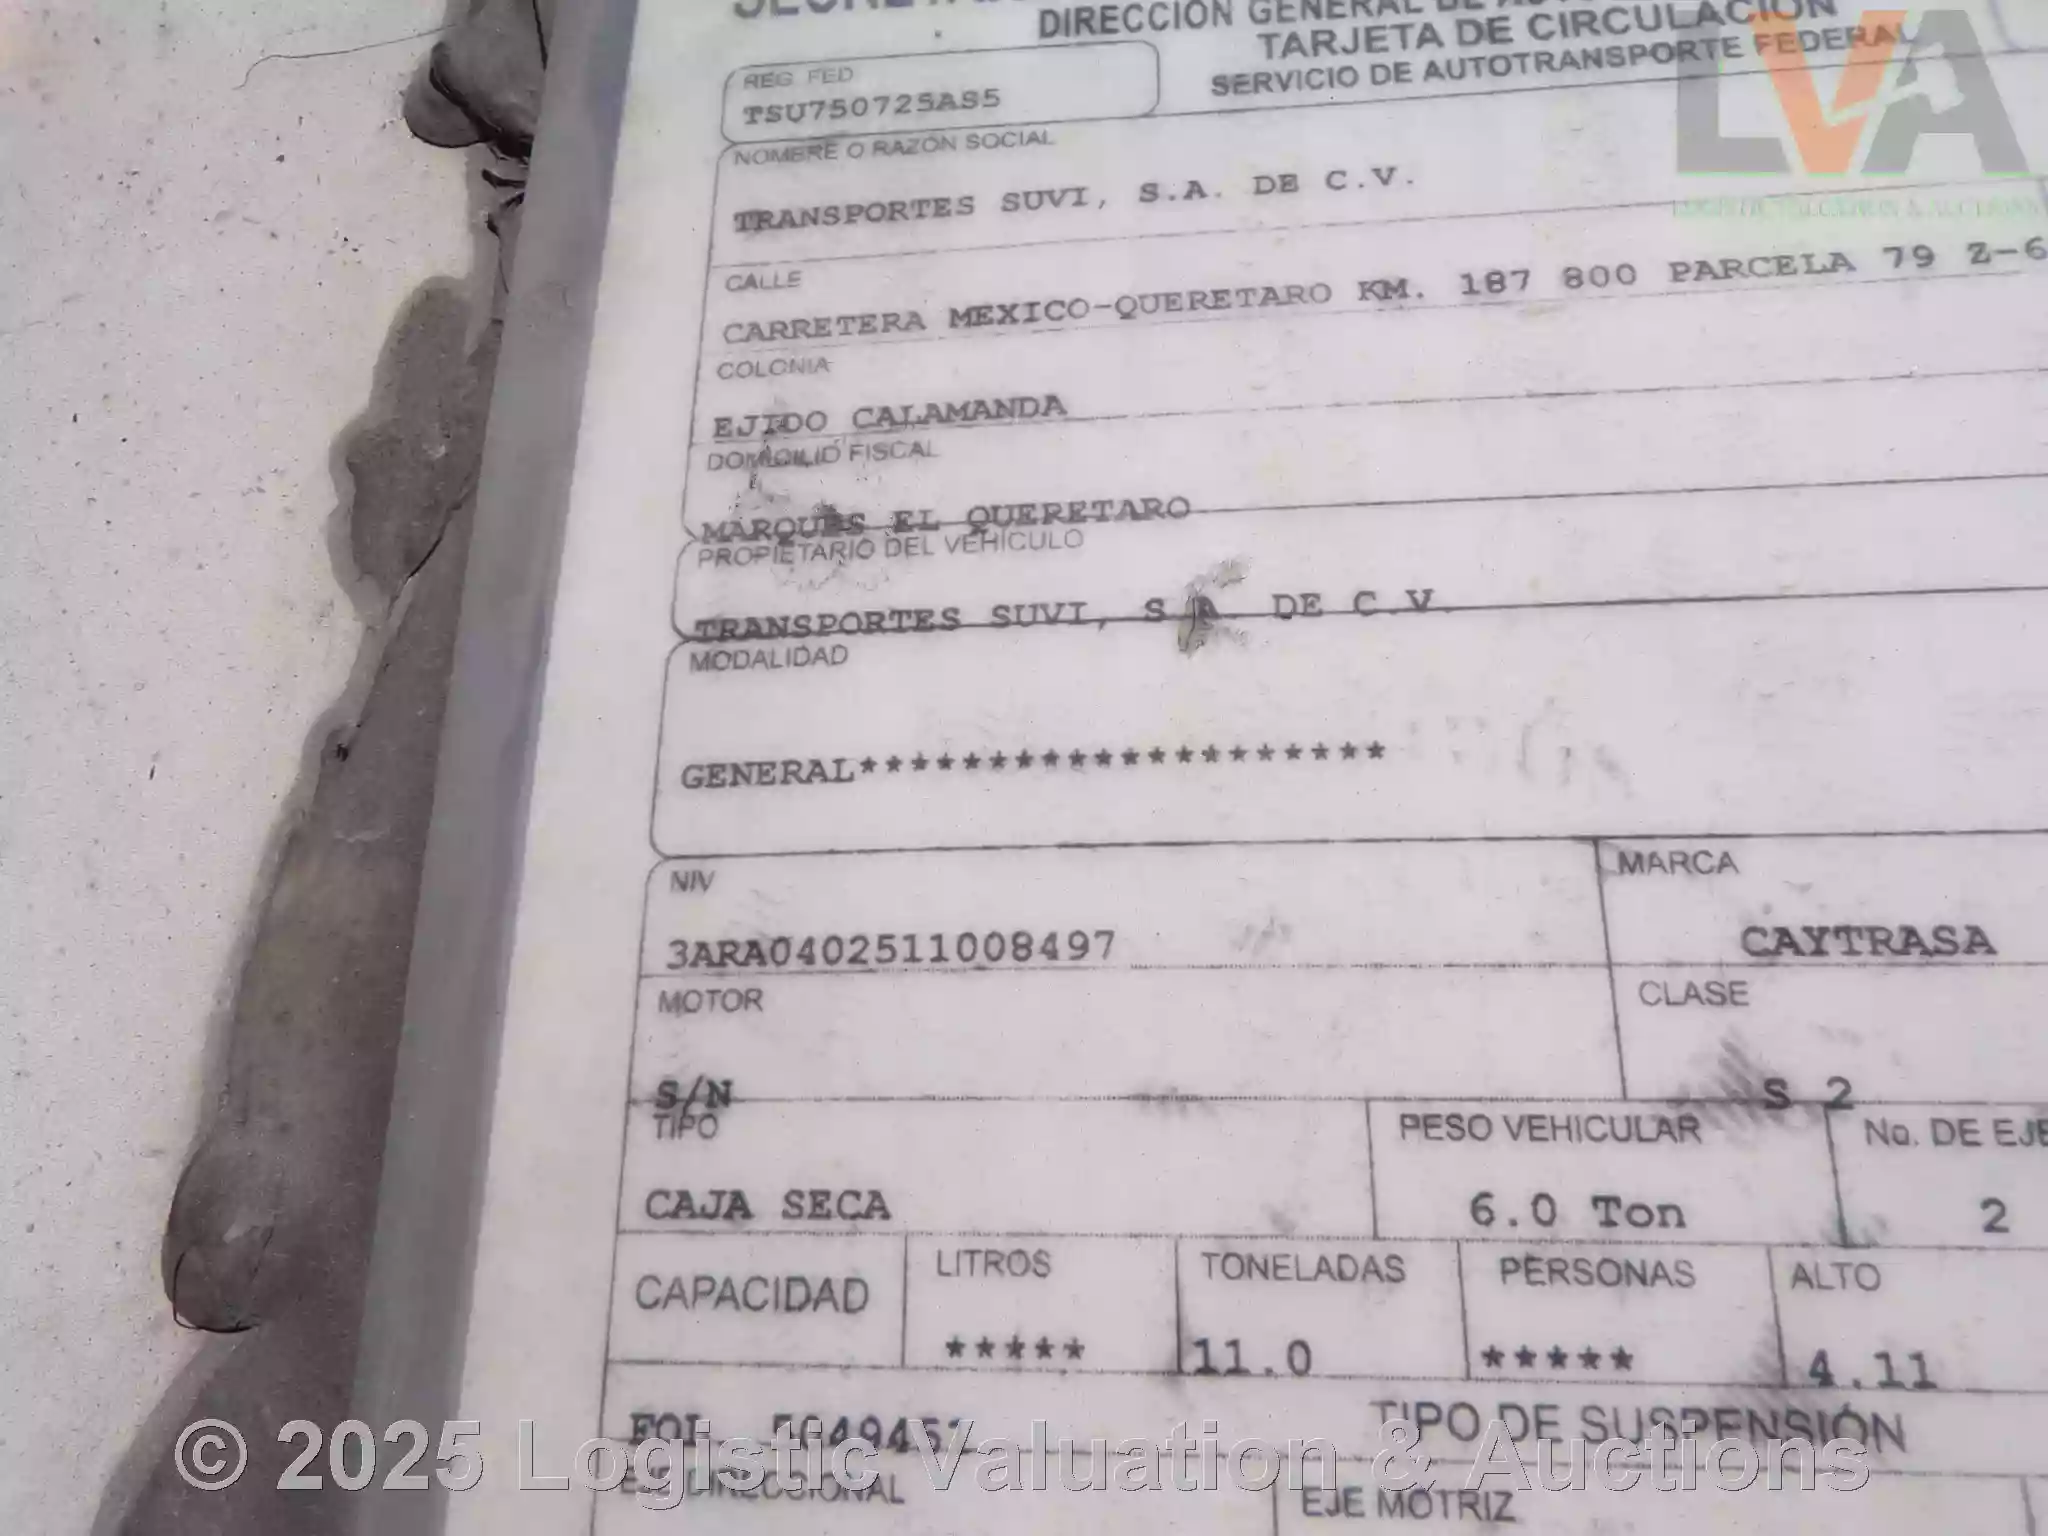 DIRECCIÓN GENERAL DE
TARJETA DE CIRCULACIÓN
SERVICIO DE AUTOTRANSPORTE FEDERAL
LVA
REG FED
TSU750725AS5
NOMBRE O RAZÓN SOCIAL
TRANSPORTES SUVI, S.A. DE C.V.
CALLE
CARRETERA MEXICO-QUERETARO KM. 187 800 PARCELA 79 Z-6
COLONIA
EJIDO CALAMANDA
DOMICILIO FISCAL
MARQUES EL QUERETARO
PROPIETARIO DEL VEHÍCULO
TRANSPORTES SUVI, S A DE C.V.
MODALIDAD
GENERAL********************
NIV MARCA
3ARA0402511008497 CAYTRASA
MOTOR CLASE
S/N S 2
TIPO PESO VEHICULAR No. DE EJE
CAJA SECA 6.0 Ton 2
CAPACIDAD LITROS TONELADAS PERSONAS ALTO
***** 11.0 ***** 4.11
FOL TIPO DE SUSPENSIÓN
© 2025 Logistic Valuation & Auctions
EJE DIRECCIONAL EJE MOTRIZ